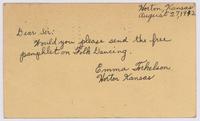 Horton, Kansas
August 27, 1942
Dear Sir:
Would you please send the free
pamphlet on Folk Dancing.
Emma Torkelson
Horton Kansas